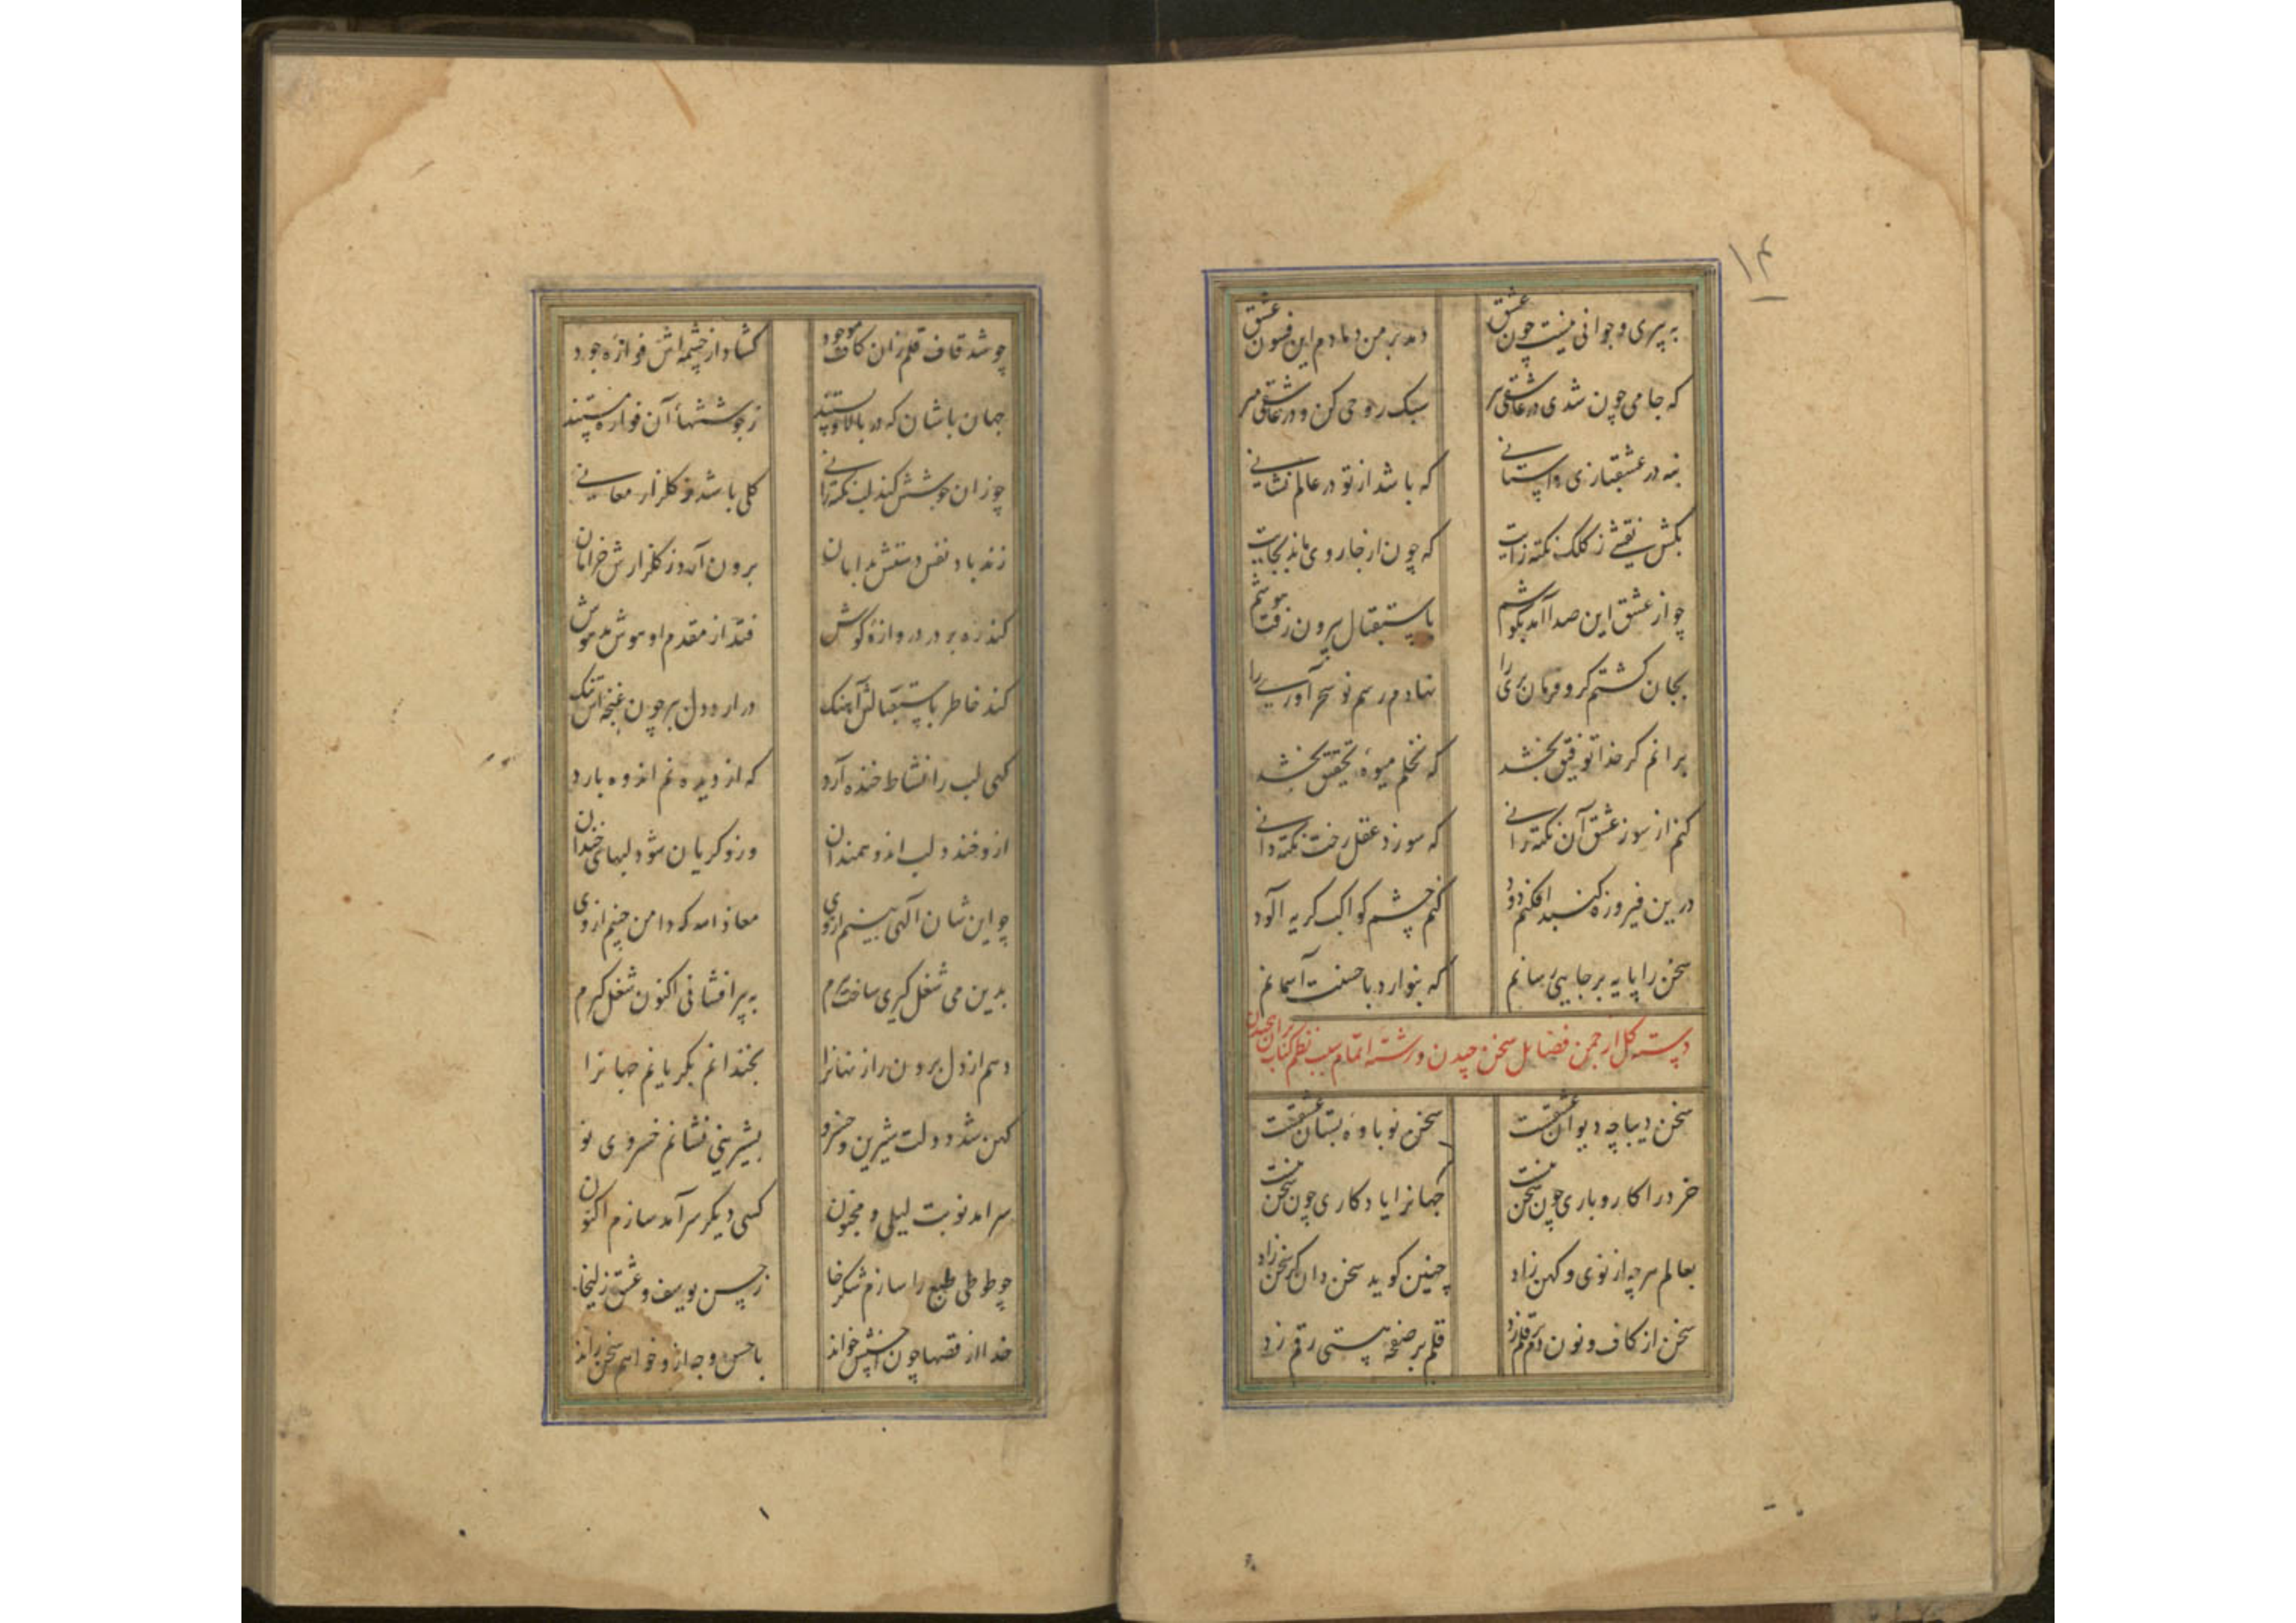 ۱۴
به پیری و جوانی نیست چون عشق دمد بر من دمادم این فسون عشق
که جامی چون شدی در عاشقی پیر سبک روحی کن و در عاشقی میر
بنه در عشقبازی داستانی که باشد از تو در عالم نشانی
بکش نقشی ز کلک نکته زایت که چون از جا روی ماند بجایت
چو از عشق این صدا آمد بگوشم باستقبال بیرون رفت هوشم
بجان گشتم گرو فرمان بری را نهادم رسم نو سحر آوری را
برانم گر خدا توفیق بخشد که نخلم میوهٔ تحقیق بخشد
کنم از سوز عشق آن نکته رانی که سوزد عقل رخت نکته دانی
درین فیروزه گنبد افکنم دود کنم چشم کواکب گریه آلود
سخن را پایه بر جایی رسانم که بنوازد باحسنت آسمانم
دسته گل از چمن فضایل سخن چیدن و رشته اتمام سبب نظم کتاب بر آن پیچیدن
سخن دیباچه دیوان عشقست سخن نوباوهٔ بستان عشقست
خرد را کار و باری چون سخن نیست جهانرا یادگاری چون سخن نیست
بعالم هر چه از نوی و کهن زاد چنین گوید سخن دان کز سخن زاد
سخن از کاف و نون دم بر قلم زد قلم بر صفحهٔ هستی رقم زد
چو شد قاف قلم زان کاف موجود گشاد از چشمه اش فوارهٔ جود
جهان باشان که در بالا و پستند ز جوششهای آن فواره هستند
چو زان جوشش کند لب نکته رانی گلی باشد ز گلزار معانی
زند باد نفس دستش بدامان برون آرد ز گلزارش خرامان
کند ره بر در دروازهٔ گوش فتد از مقدم او هوش مدهوش
کند خاطر باستقبالش آهنگ در آرد دل ببر چون غنچه اش تنگ
گهی لب را نشاط خنده آرد گه از دیده نم اندوه بارد
ازو خندد لب اندوهمندان وزو گریان شود لبهای خندان
چو این شان آگهی بینم ازوی معاذ الله که دامن چینم ازوی
بدین می شغل گیری ساخت پیرم به پیر افشانی اکنون شغل گیرم
دهم از دل برون راز نهانرا بخندانم بگریانم جهانرا
کهن شد دولت شیرین و خسرو بشیرینی نشانم خسروی نو
سرآمد نوبت لیلی و مجنون کسی دیگر سرآمد سازم اکنون
چو طوطی طبع را سازم شکرخا ز حسن یوسف و عشق زلیخا
خدا از قصها چون احسنش خواند باحسن وجه ازو خواهم سخن راند